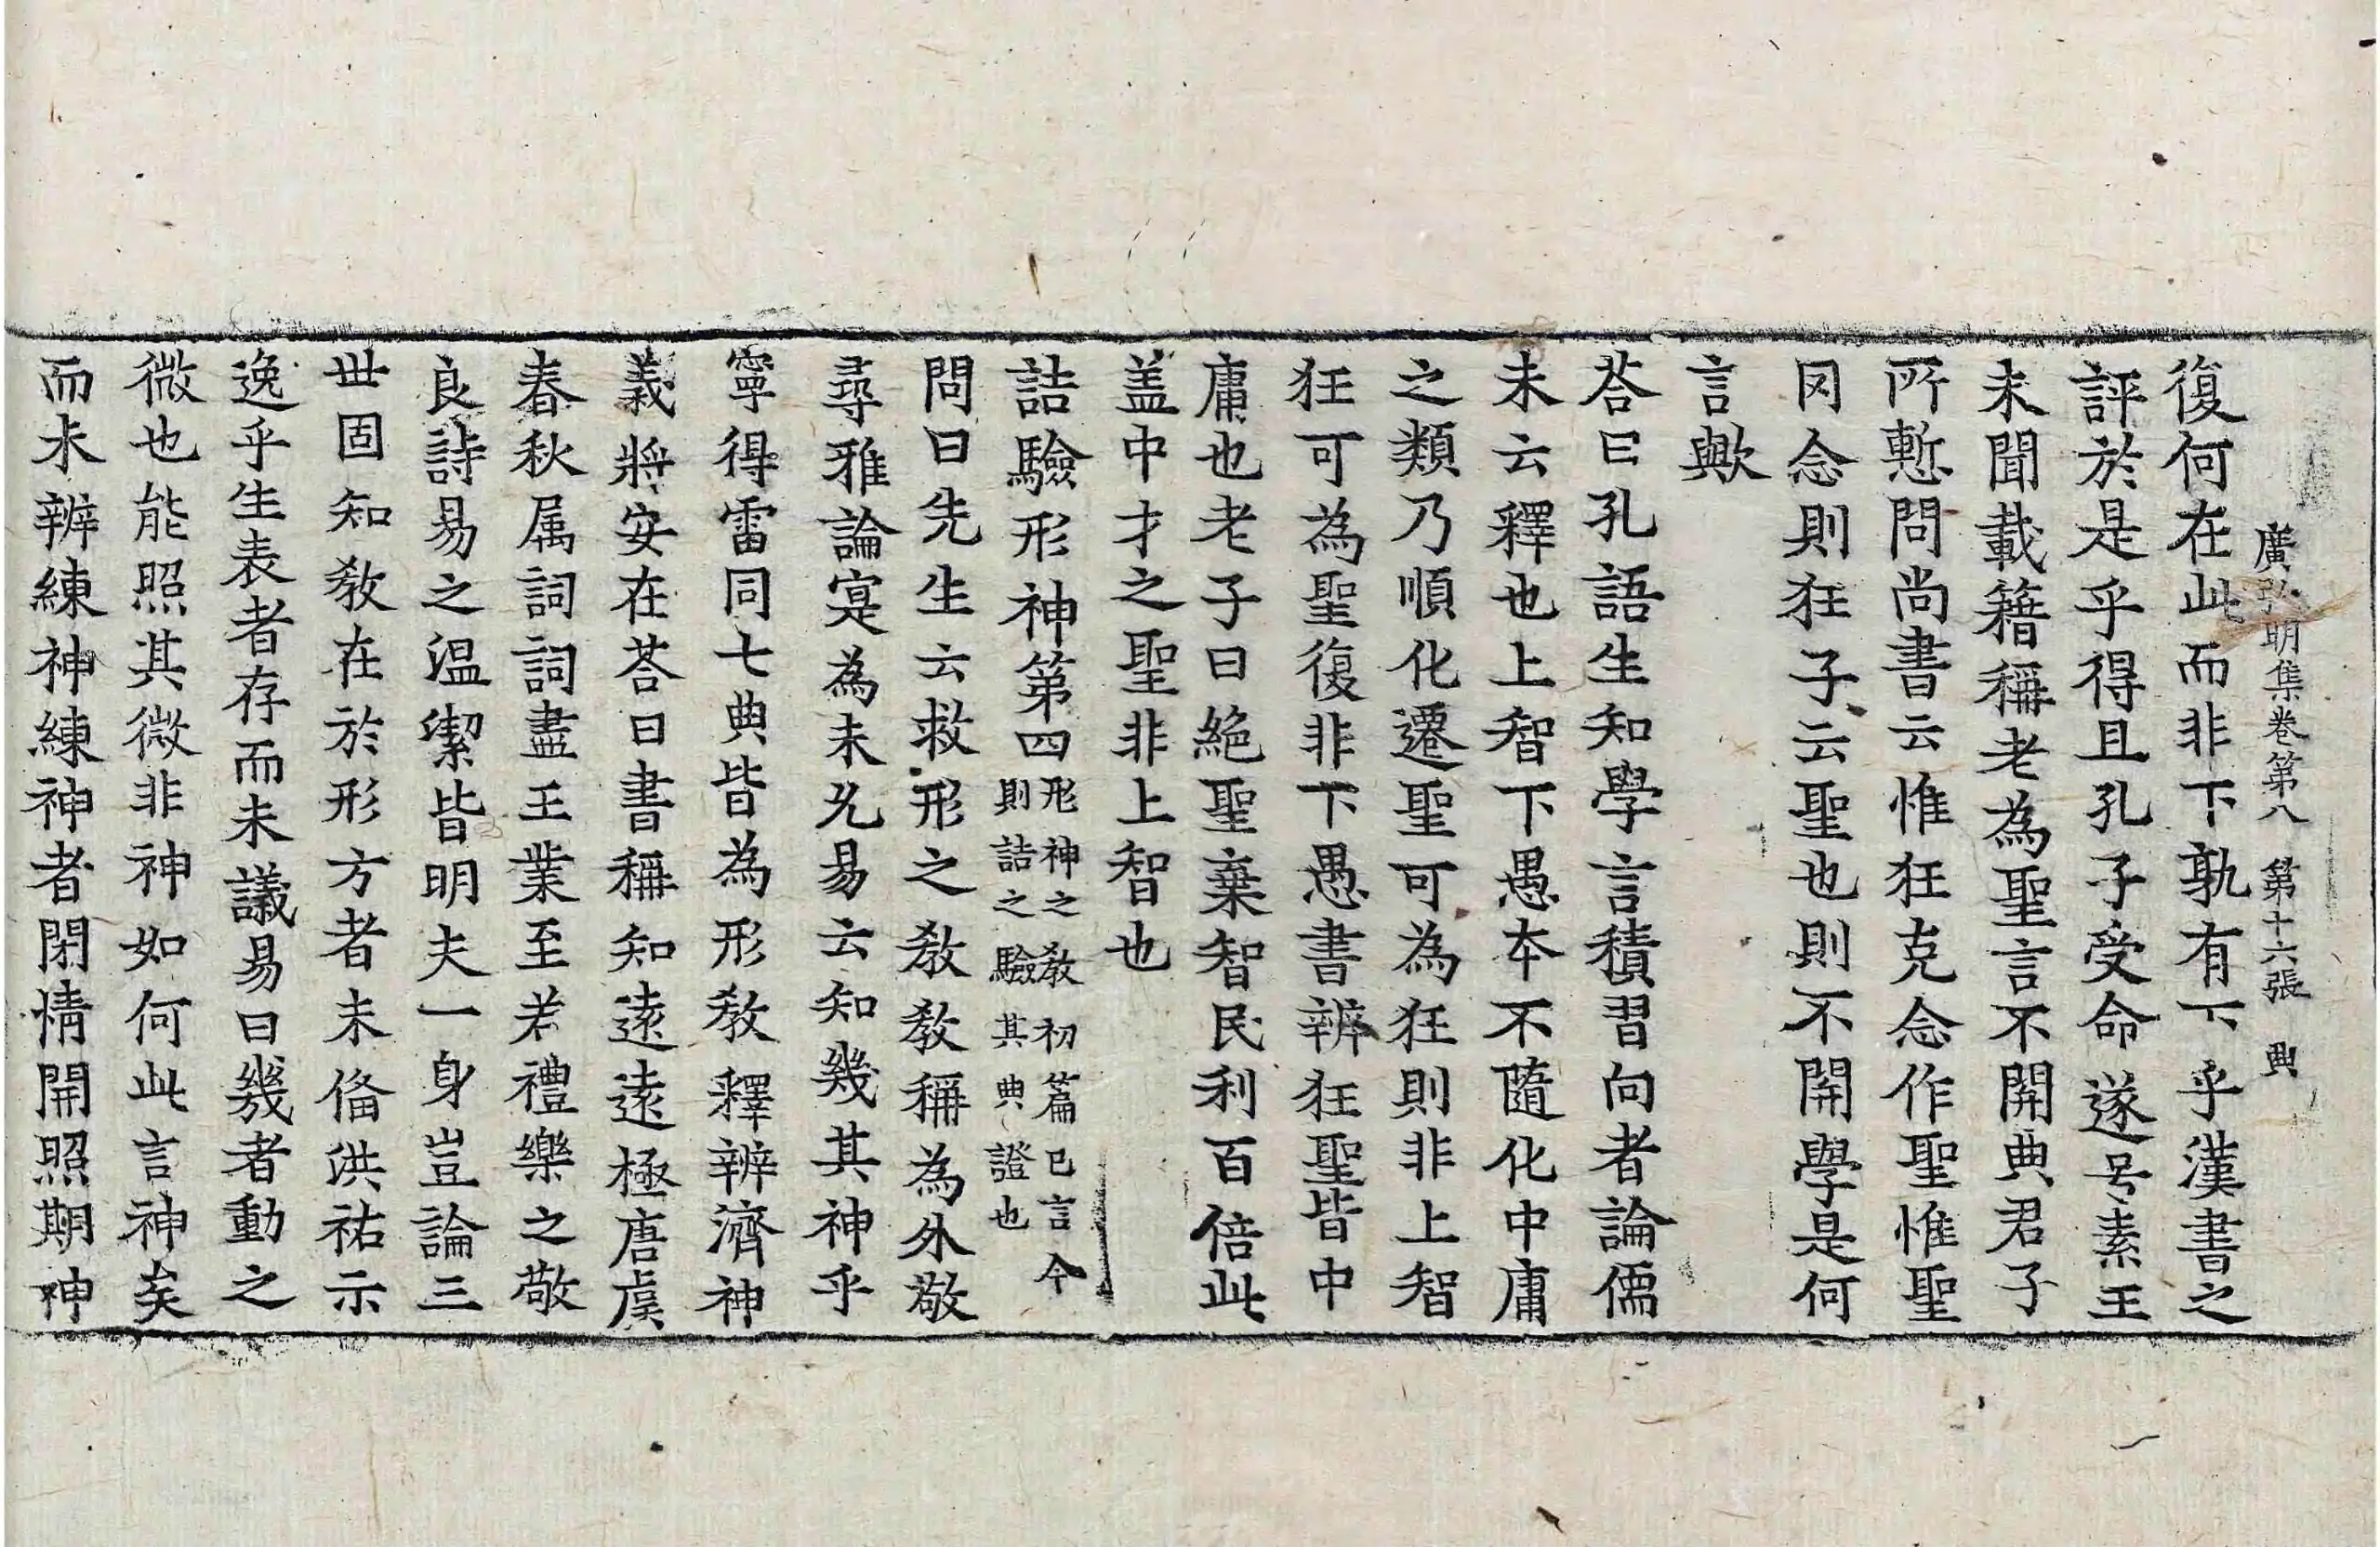 廣弘明集卷第八　第十六張　典
復何在此而非下孰有下乎漢書之
評於是乎得且孔子受命遂号素王
未聞載籍稱老為聖言不開典君子
所慙問尚書云惟狂克念作聖惟聖
罔念則狂子云聖也則不開學是何
言歟
荅曰孔語生知學言積習向者論儒
未云釋也上智下愚本不隨化中庸
之類乃順化遷聖可為狂則非上智
狂可為聖復非下愚書辨狂聖皆中
庸也老子曰絕聖棄智民利百倍此
盖中才之聖非上智也
詰驗形神第四形神之教初篇已言今
則詰之驗其典證也
問曰先生云救形之教教稱為外敬
尋雅論寔為未允易云知幾其神乎
寧得雷同七典皆為形教釋辨濟神
義將安在荅曰書稱知遠遠極唐虞
春秋属詞詞盡王業至若禮樂之敬
良詩易之温潔皆明夫一身豈論三
世固知教在於形方者未俻洪祐示
逸乎生表者存而未議易曰幾者動之
微也能照其微非神如何此言神矣
而未辨練神練神者閉情開照期神